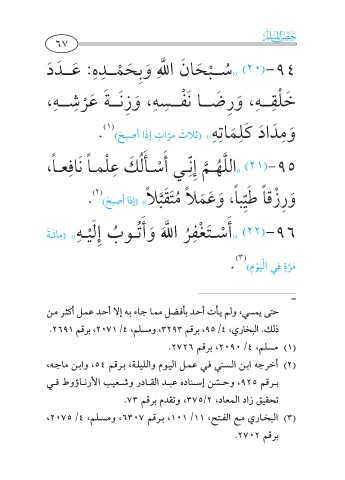 حصن المسلم
٦٧
٩٤-(٢٠) «سُبْحَانَ اللَّهِ وَبِحَمْدِهِ: عَدَدَ
خَلْقِهِ، وَرِضَا نَفْسِهِ، وَزِنَةَ عَرْشِهِ،
وَمِدَادَ كَلِمَاتِهِ» (ثلاثَ مرَّاتٍ إذا أصبحَ)(١).
٩٥-(٢١) «اللَّهُمَّ إِنِّي أَسْأَلُكَ عِلْماً نَافِعاً،
وَرِزْقاً طَيِّباً، وَعَمَلاً مُتَقَبَّلاً» (إذا أصبحَ)(٢).
٩٦-(٢٢) «أَسْتَغْفِرُ اللَّهَ وَأَتُوبُ إِلَيْهِ» (مِائَةَ
مَرَّةٍ فِي الْيَوْمِ)(٣).
= حتى يمسي، ولم يأت أحد بأفضل مما جاء به إلا أحد عمل أكثر من
ذلك. البخاري، ٤/ ٩٥، برقم ٣٢٩٣، ومسلم، ٤/ ٢٠٧١، برقم ٢٦٩١.
(١) مسلم، ٤/ ٢٠٩٠، برقم ٢٧٢٦.
(٢) أخرجه ابن السني في عمل اليوم والليلة، برقم ٥٤، وابن ماجه،
برقم ٩٢٥، وحسّن إسناده عبد القادر وشعيب الأرناؤوط في
تحقيق زاد المعاد، ٢/ ٣٧٥، وتقدم برقم ٧٣.
(٣) البخاري مع الفتح، ١١/ ١٠١، برقم ٦٣٠٧، ومسلم، ٤/ ٢٠٧٥،
برقم ٢٧٠٢.